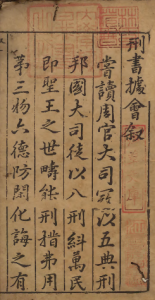 刑書據會叙
嘗讀周官大司冦以五典刑
邦國大司徒以八刑糾萬民
即聖王之世疇能刑措弗用
第三物六德防閑化誨之有